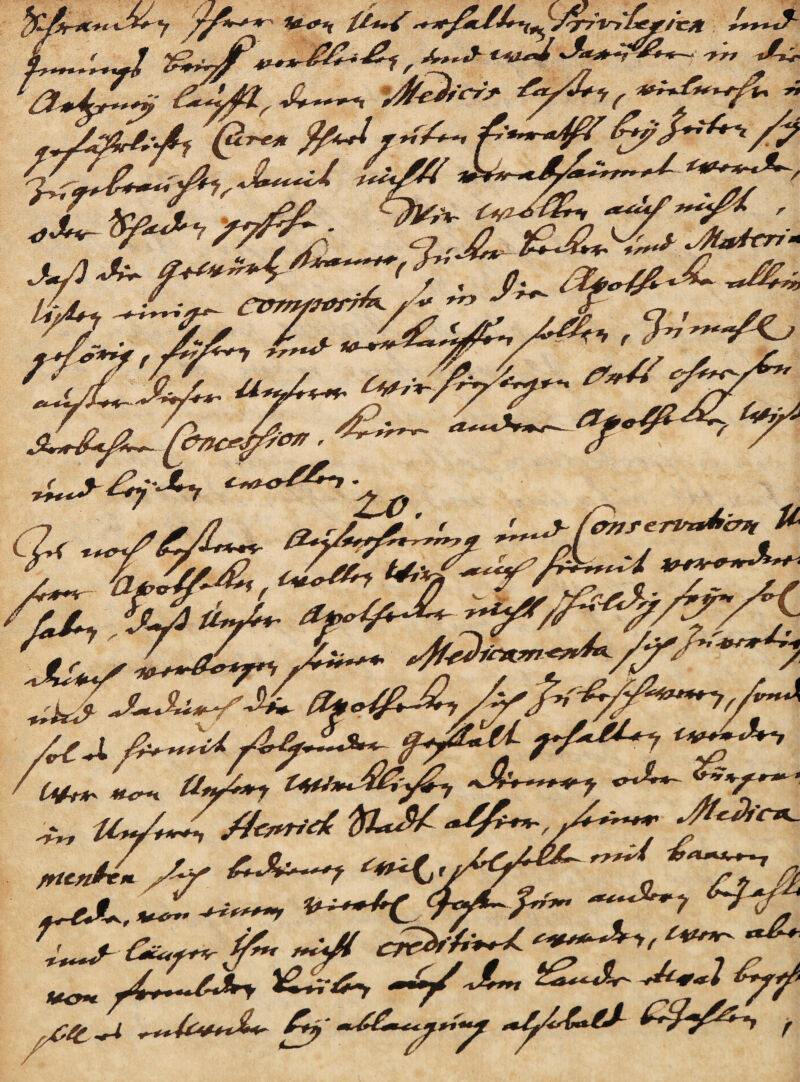 Schrancken Ihrer von Uns erhaltenen Privilegien und
Innungs Brieff verbleiben, und was darüber in die
Artzeney laufft, denen Medicis laßen, vielmehr i
gefährlichen Curen Ihres guten Einraths bey Zeiten sich
zugebrauchen, damit nichts verabsäumet werde,
oder Schaden geschehe. Wir wollen auch nicht,
daß die Gewürtz Kramer, Zucker Becker und Materia
listen einige composita so in die Apothecke allein
gehörig, führen und verkauffen sollen, Zumahl
außer dieser Unserer wir hiesiegen Orts ohne son
derbahre Concession, keine andere Apothecke, wiß
und leyden wollen.
20.
Zu noch beßerer Aufnehmung und Conservation U
serer Apothecken, wollen Wir auch hiemit verordne
haben, daß Unser Apothecker nicht schuldig seyn sol
durch verborgen seiner Medicamenta sich zuvertie
und dadurch die Apothecken sich zubeschweren, sond
sol es hiemit folgender Gestalt gehalten werden
Wer von Unsern Wircklichen Dienern oder Bürgern
in Unseren Henrich Stadt alhier, seiner Medica
menten sich bedienen wil, sol selbe mit baaren
gelde, von einem viertel Jahre zum andern bezahle
und länger ihm nicht creditiret werden, wer aber
von frembden Leüten auf dem Lande etwas begeh
soll es entweder bey ablangung alsobald bezahlen,